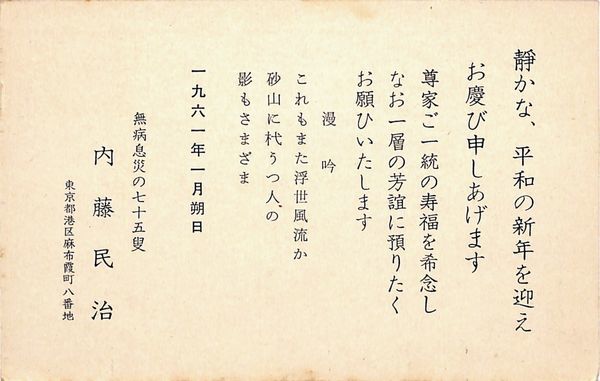 靜かな、平和の新年を迎え
お慶び申しあげます
尊家ご一統の寿福を希念し
なお一層の芳誼に預りたく
お願ひいたします
漫吟
これもまた浮世風流か
砂山に杙うつ人の
影もさまざま
一九六一年一月朔日
無病息災の七十五叟
内藤民治
東京都港区麻布霞町八番地